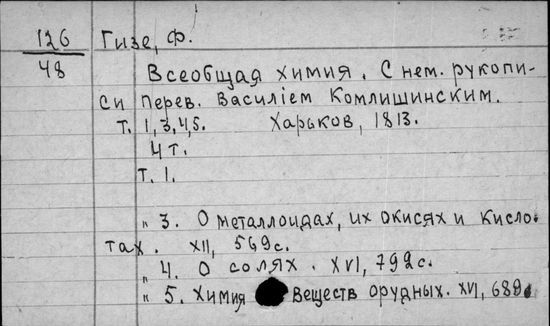 126 Гизе, Ф.
48
Всеобщая химия. С нем. рукопи-
си перев. Василіем Комлишинским.
т. 1,3,4,5. Харьков, 1813.
4 т.
т. 1.
" 3. О металлоидах, их окисях и кисло-
тах. XII, 569 с.
" 4. О солях. XVI, 792 с.
" 5. Химия веществ орудных. XVI, 689